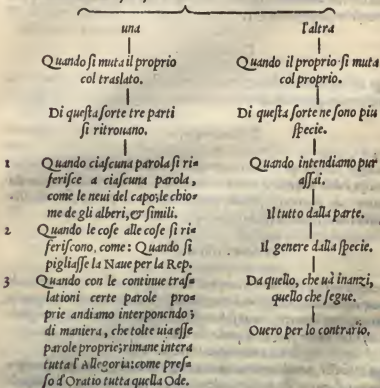 una
Quando ſi muta il proprio
col traslato.
Di queſta ſorte tre parti
ſi ritrouano.
1 Quando ciaſcuna parola ſi ri=
feriſce a ciaſcuna parola,
come le neui del capo; le chio=
me de gli alberi, & ſimili.
2 Quando le coſe alle coſe ſi ri=
feriſcono, come: Quando ſi
pigliaſſe la Naue per la Rep.
3 Quando con le continue traſ=
lationi certe parole pro=
prie andiamo interponendo;
di maniera, che tolte uia eſſe
parole proprie; rimane intera
tutta l'Allegoria: come preſ=
ſo d'Oratio tutta quella Ode.
l'altra
Quando il proprio ſi muta
col proprio.
Di queſta ſorte ne ſono piu
ſpecie.
Quando intendiamo pur
aſſai.
Il tutto dalla parte.
Il genere dalla ſpecie.
Da quello, che uà inanzi,
quello che ſegue.
Ouero per lo contrario.